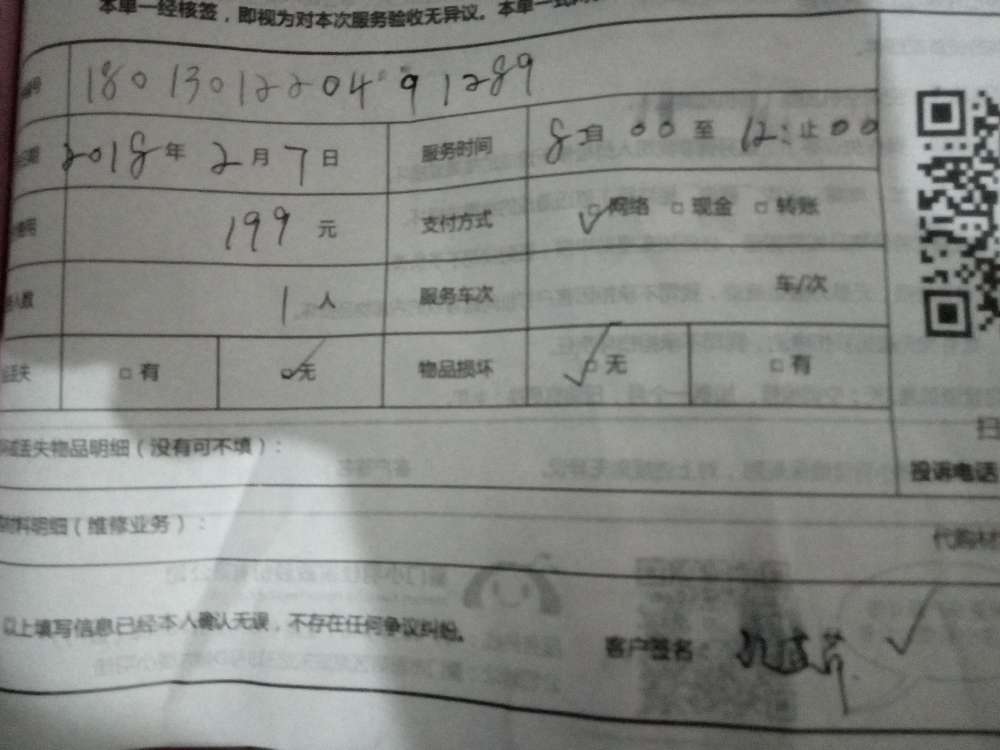 本单一经核签，即视为对本次服务验收无异议。本单一式
号 18013012204 91289
2018年 2月7日 服务时间 8自00至12:止00
199元 支付方式 □网络 □现金 □转账
人数 1人 服务车次 车/次
丢失 □有 □无 物品损坏 □无 □有
扫
丢失物品明细（没有可不填）：
投诉电话
材料明细（维修业务）：
代购材
以上填写信息已经本人确认无误，不存在任何争议纠纷。
客户签名：